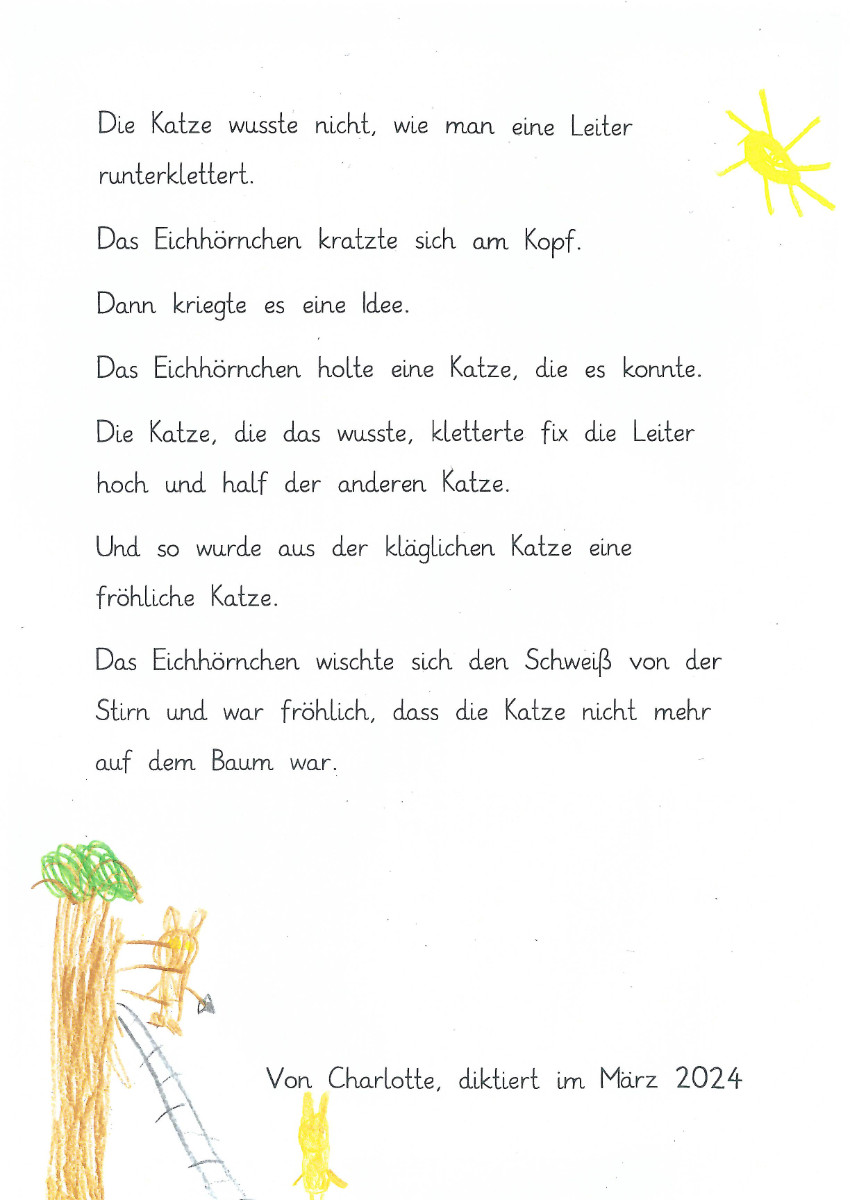 Die Katze wusste nicht, wie man eine Leiter
runterklettert.
Das Eichhörnchen kratzte sich am Kopf.
Dann kriegte es eine Idee.
Das Eichhörnchen holte eine Katze, die es konnte.
Die Katze, die das wusste, kletterte fix die Leiter
hoch und half der anderen Katze.
Und so wurde aus der kläglichen Katze eine
fröhliche Katze.
Das Eichhörnchen wischte sich den Schweiß von der
Stirn und war fröhlich, dass die Katze nicht mehr
auf dem Baum war.
Von Charlotte, diktiert im März 2024